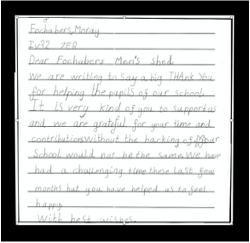 Fochabers, Moray
IV32 7ER
Dear Fochabers Men's Shed
We are writing to say a big Thank You
for helping the pupils of our school.
It is very kind of you to support us
and we are grateful for your time and
contributions without the backing of our
School would not be the same. We have
had a challenging time these last few
months but you have helped us to feel
happy.
With best wishes.